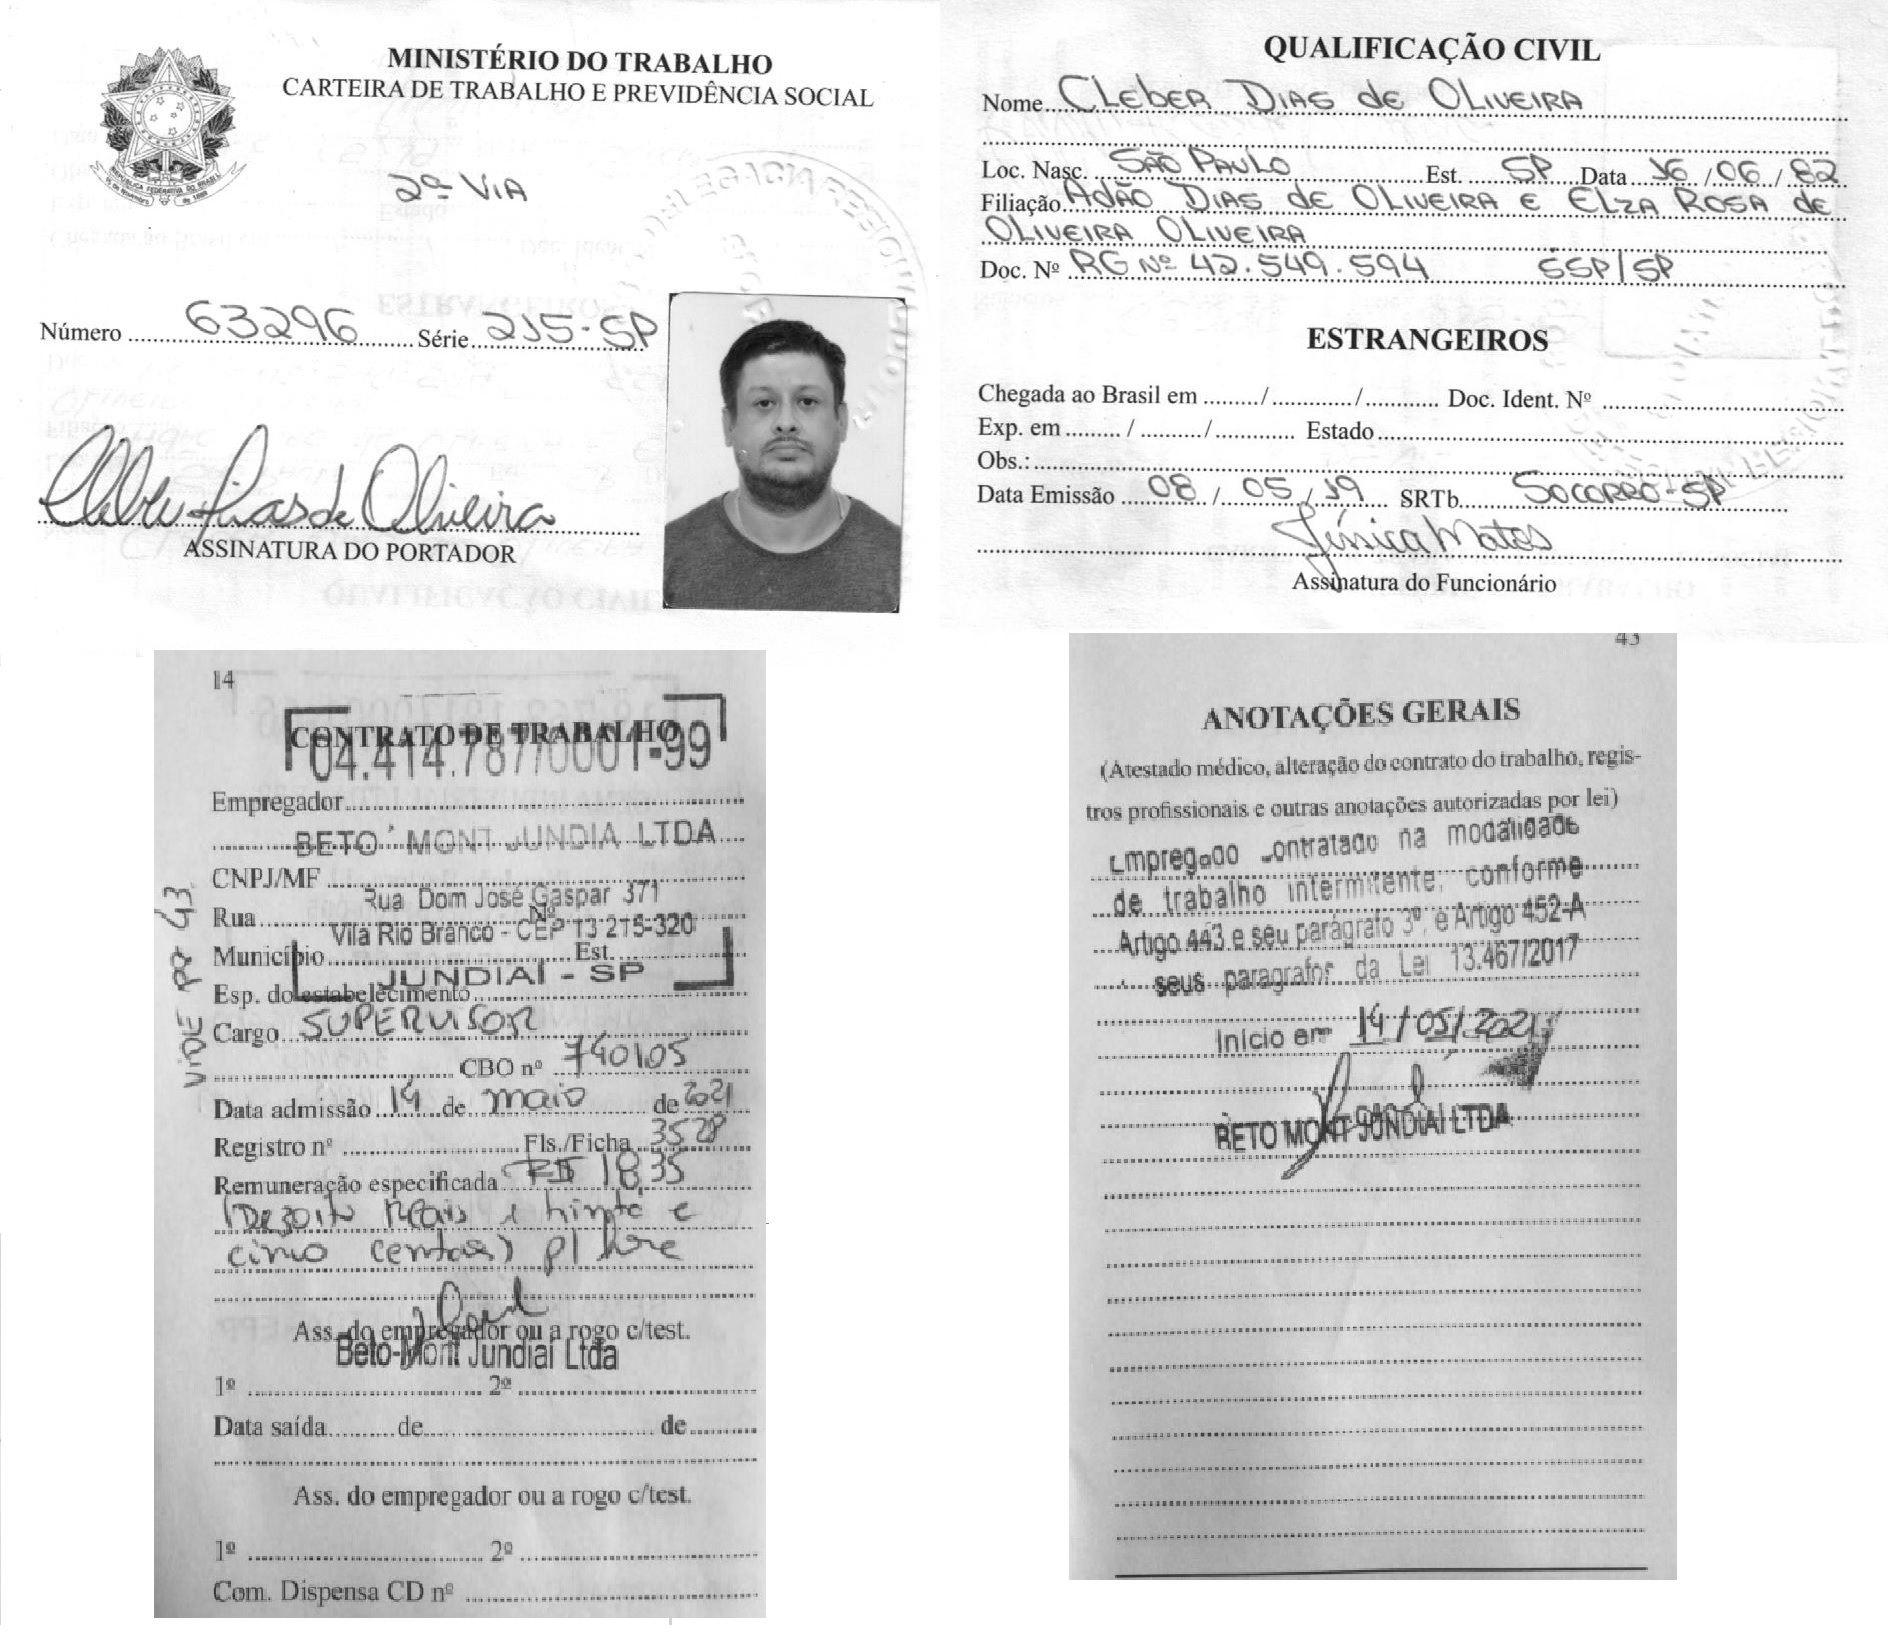 MINISTÉRIO DO TRABALHO
CARTEIRA DE TRABALHO E PREVIDÊNCIA SOCIAL
REPÚBLICA FEDERATIVA DO BRASIL
15 de Novembro de 1889
2ª VIA
Número 63296 Série 215-SP
Cleber Dias de Oliveira
ASSINATURA DO PORTADOR
QUALIFICAÇÃO CIVIL
Nome CLEBER DIAS de OLIVEIRA
Loc. Nasc. SÃO PAULO Est. SP Data 16/06/82
Filiação ADÃO DIAS de OLIVEIRA E ELZA ROSA de
OLIVEIRA OLIVEIRA
Doc. Nº RG Nº 42.549.594 SSP/SP
ESTRANGEIROS
Chegada ao Brasil em ......../............../............ Doc. Ident. Nº
Exp. em ........ / ........../............. Estado
Obs.:
Data Emissão 08 / 05 / 19 SRTb. SOCORRO-SP
Jéssica Matos
Assinatura do Funcionário
14
CONTRATO DE TRABALHO
04.414.787/0001-99
Empregador
BETO MONT JUNDIA LTDA
CNPJ/MF
Rua Dom José Gaspar 371
Rua Nº
Vila Rio Branco - CEP 13 215-320
Município Est.
JUNDIAÍ - SP
Esp. do estabelecimento
Cargo SUPERVISOR
CBO nº 740105
Data admissão 14 de maio de 2021
Registro nº Fls./Ficha 3528
Remuneração especificada R$ 18,35
(Dezoito Reais e trinta e
cinco centavos) p/ hora
Ass. do empregador ou a rogo c/test.
Beto-Mont Jundiaí Ltda
1º 2º
Data saída de de
Ass. do empregador ou a rogo c/test.
1º 2º
Com. Dispensa CD nº
VIDE PG 43
43
ANOTAÇÕES GERAIS
(Atestado médico, alteração do contrato do trabalho, regis-
tros profissionais e outras anotações autorizadas por lei)
Empregado contratado na modalidade
de trabalho intermitente, conforme
Artigo 443 e seu parágrafo 3º, e Artigo 452-A
seus paragrafos da Lei 13.467/2017
Início em 14/05/2021
BETO MONT JUNDIAÍ LTDA